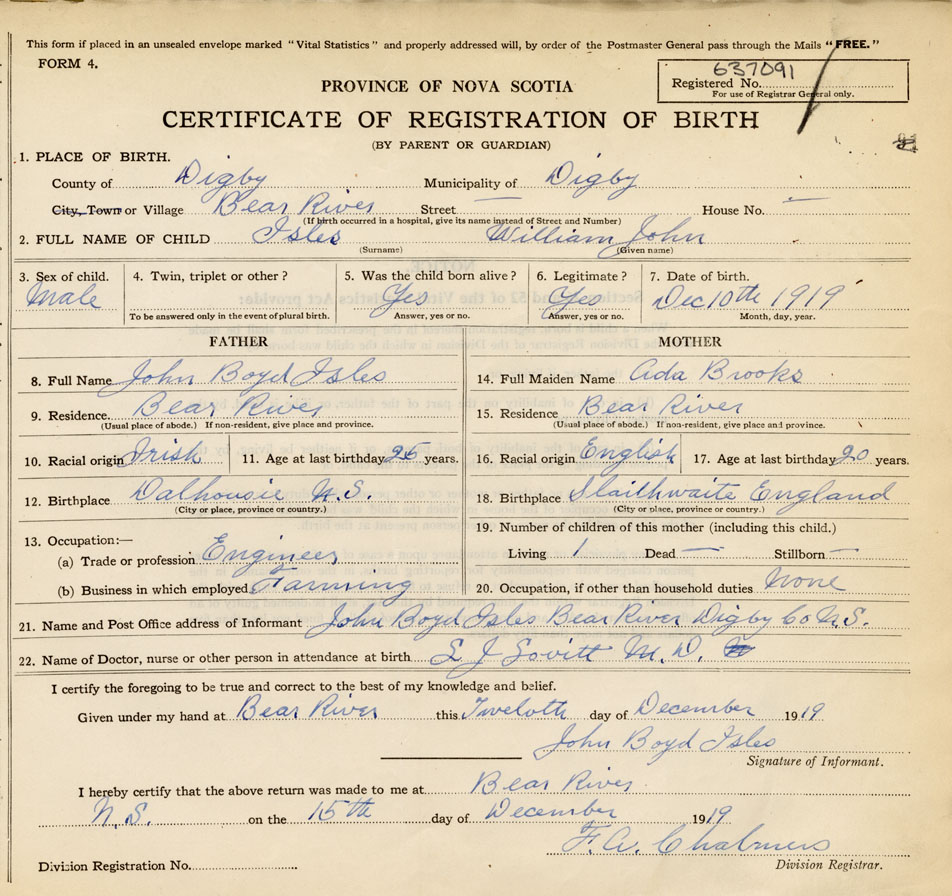 This form if placed in an unsealed envelope marked "Vital Statistics" and properly addressed will, by order of the Postmaster General pass through the Mails "FREE."
FORM 4.
637091
Registered No.
For use of Registrar General only.
PROVINCE OF NOVA SCOTIA
CERTIFICATE OF REGISTRATION OF BIRTH
(BY PARENT OR GUARDIAN)
1. PLACE OF BIRTH.
County of Digby Municipality of Digby
City, Town or Village Bear River Street — House No. —
(If birth occurred in a hospital, give its name instead of Street and Number)
2. FULL NAME OF CHILD Isles William John
(Surname) (Given name)
3. Sex of child. 4. Twin, triplet or other? 5. Was the child born alive? 6. Legitimate? 7. Date of birth.
Male Yes Yes Dec 10th 1919
To be answered only in the event of plural birth. Answer, yes or no. Answer, yes or no. Month, day, year.
FATHER MOTHER
8. Full Name John Boyd Isles 14. Full Maiden Name Ada Brooks
9. Residence Bear River 15. Residence Bear River
(Usual place of abode.) If non-resident, give place and province. (Usual place of abode.) If non-resident, give place and province.
10. Racial origin Irish 11. Age at last birthday 25 years. 16. Racial origin English 17. Age at last birthday 20 years.
12. Birthplace Dalhousie N.S. 18. Birthplace Slaithwaite England
(City or place, province or country.) (City or place, province or country.)
13. Occupation:— 19. Number of children of this mother (including this child.)
(a) Trade or profession Engineer Living 1 Dead — Stillborn —
(b) Business in which employed Farming 20. Occupation, if other than household duties None
21. Name and Post Office address of Informant John Boyd Isles Bear River Digby Co N.S.
22. Name of Doctor, nurse or other person in attendance at birth L J Lovitt M.D.
I certify the foregoing to be true and correct to the best of my knowledge and belief.
Given under my hand at Bear River this Twelfth day of December 1919
John Boyd Isles
Signature of Informant.
I hereby certify that the above return was made to me at Bear River
N.S. on the 15th day of December 1919
F. A. Chalmers
Division Registration No. Division Registrar.